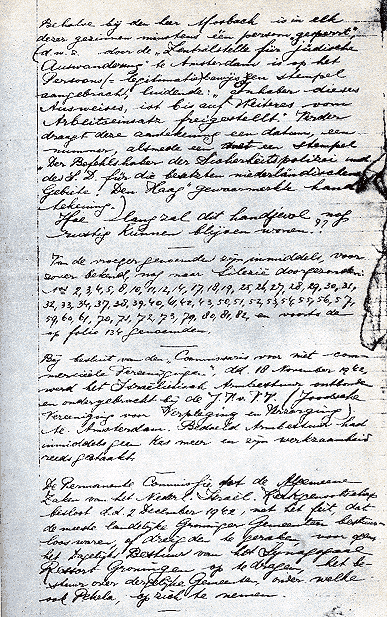 Behalve bij den heer Mosbach is in elk
dezer gezinnen minstens één persoon "gesperrt"
(d.w.z. door de "Zentralstelle für jüdische
Auswanderung" te Amsterdam is op het
Persoons/-legitimatie/bewijs een stempel
aangebracht, luidende: "Inhaber dieses
Ausweises, ist bis auf Weiteres vom
Arbeitseinsatz freigestellt". Verder
draagt deze aantekening een datum, een
nummer, alsmede een stempel
"Der Befehlshaber der Sicherheitspolizei und
des S.D. für die besetzten niederländischen
Gebiete. Den Haag" gewaarmerkte hand
tekening.)
Hoe lang zal dit handjevol nog
rustig kunnen blijven wonen??
Van de vroeger genoemde zijn inmiddels, voor
zover bekend, nog naar Silezië doorgezonden:
1, 2, 3, 4, 5, 8, 10, 11, 12, 14, 17, 18, 19, 25, 26, 27, 28, 29, 30, 31,
32, 33, 34, 37, 38, 39, 40, 41, 42, 43, 50, 51, 52, 53, 54, 55, 56, 57,
59, 60, 61, 70, 71, 72, 73, 79, 80, 81, 82, en voorts de
op folio 134 genoemden.
Bij besluit van den "Commissaris voor niet com-
mercieele Vereenigingen", dd. 18 November 1942,
werd het Israelietisch Armbestuur ontbonden
en ondergebracht bij de J.V.v.V.V. (Joodsche
Vereeniging voor Verpleging en Verzorging)
te Amsterdam. Bedoeld Armbestuur had
inmiddels geen kas meer en zijn werkzaamheid
reeds gestaakt.
De Permanente Commissie tot de Algemeene
Zaken van het Nederl. Israël. Kerkgenootschap
besloot d.d. 2 December 1942, met het feit, dat
de meeste landelijke Groninger Gemeenten bestuur-
loos waren, of dreigden te geraken voor oogen
het Dagelijks Bestuur van het Synagogaale
Ressort Groningen op te dragen, het be-
stuur over dergelijke Gemeente, onder welke
ook Pekela, op zich te nemen.